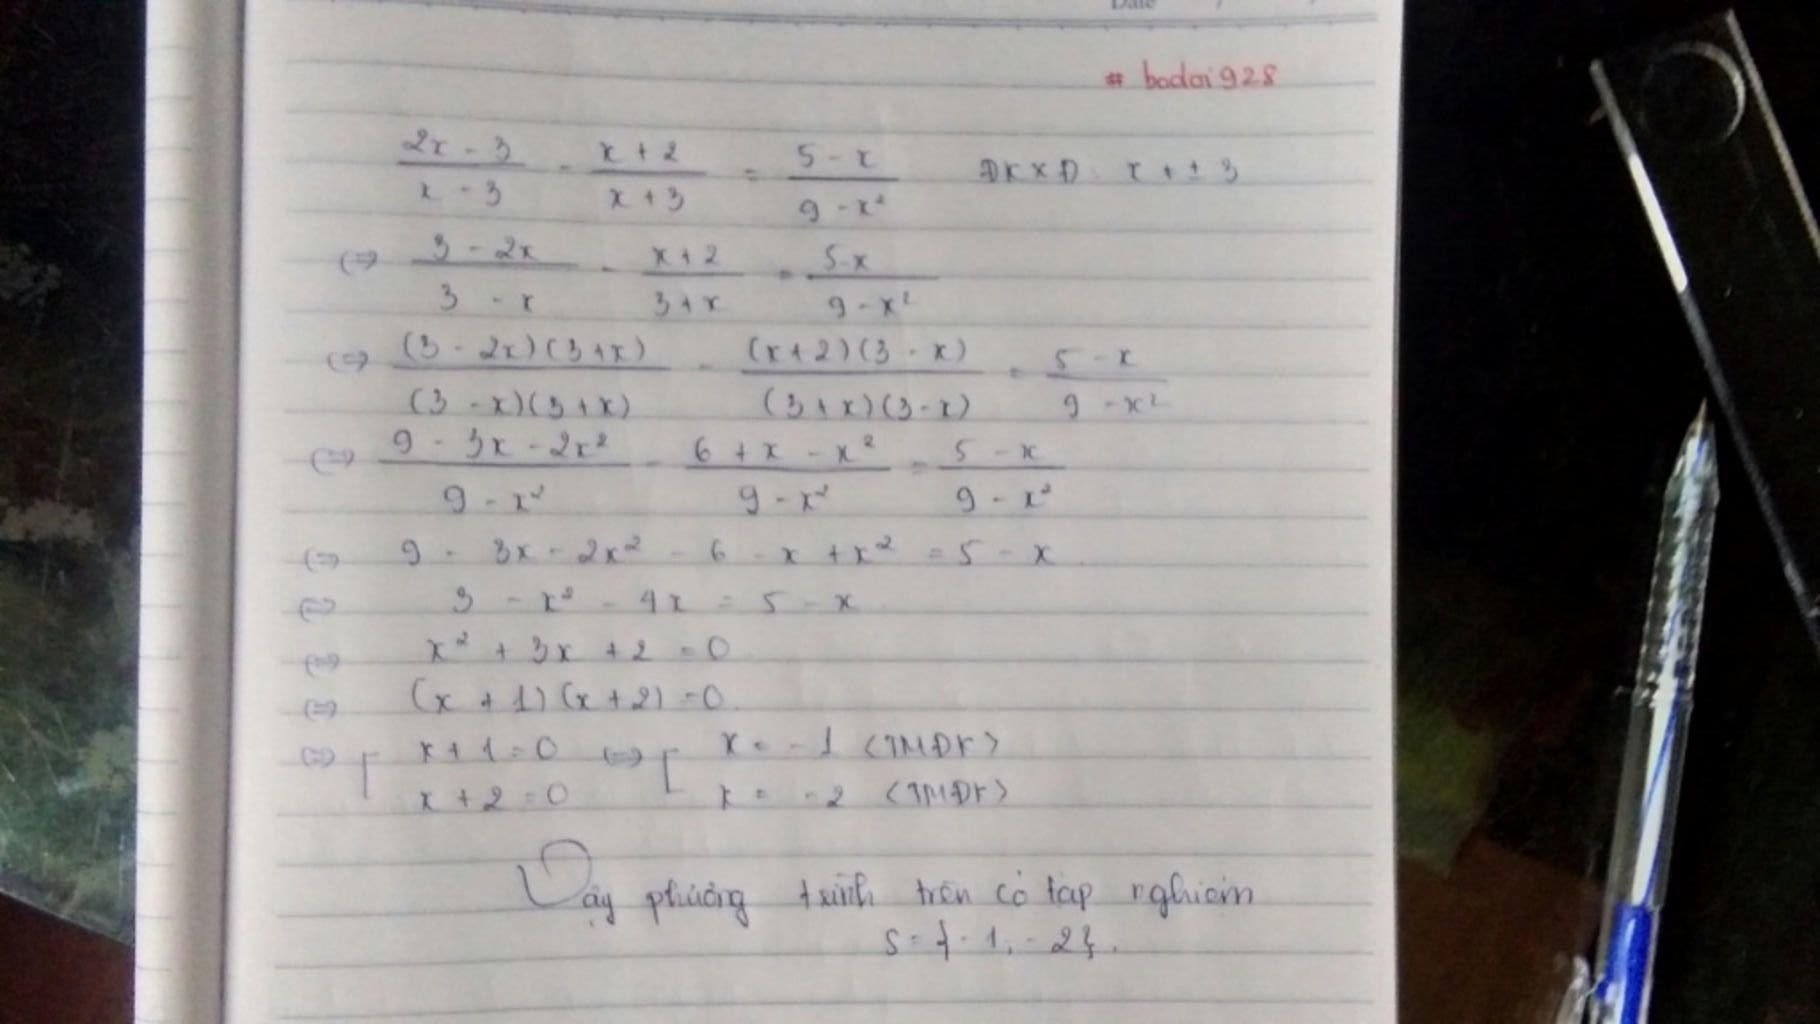 Date / /
# bodai928
\frac{2x - 3}{x - 3} - \frac{x + 2}{x + 3} = \frac{5 - x}{9 - x^2} ĐKXĐ: x ≠ ± 3
(=) \frac{3 - 2x}{3 - x} - \frac{x + 2}{3 + x} = \frac{5 - x}{9 - x^2}
(=) \frac{(3 - 2x)(3 + x)}{(3 - x)(3 + x)} - \frac{(x + 2)(3 - x)}{(3 + x)(3 - x)} = \frac{5 - x}{9 - x^2}
(=) \frac{9 - 3x - 2x^2}{9 - x^2} - \frac{6 + x - x^2}{9 - x^2} = \frac{5 - x}{9 - x^2}
(=) 9 - 3x - 2x² - 6 - x + x² = 5 - x
(=) 3 - x² - 4x = 5 - x
(=) x² + 3x + 2 = 0
(=) (x + 1)(x + 2) = 0
(=) [ x + 1 = 0 (=) [ x = -1 <TMĐK>
x + 2 = 0 x = -2 <TMĐK>
Vậy phương trình trên có tập nghiệm
S = {-1; -2}.